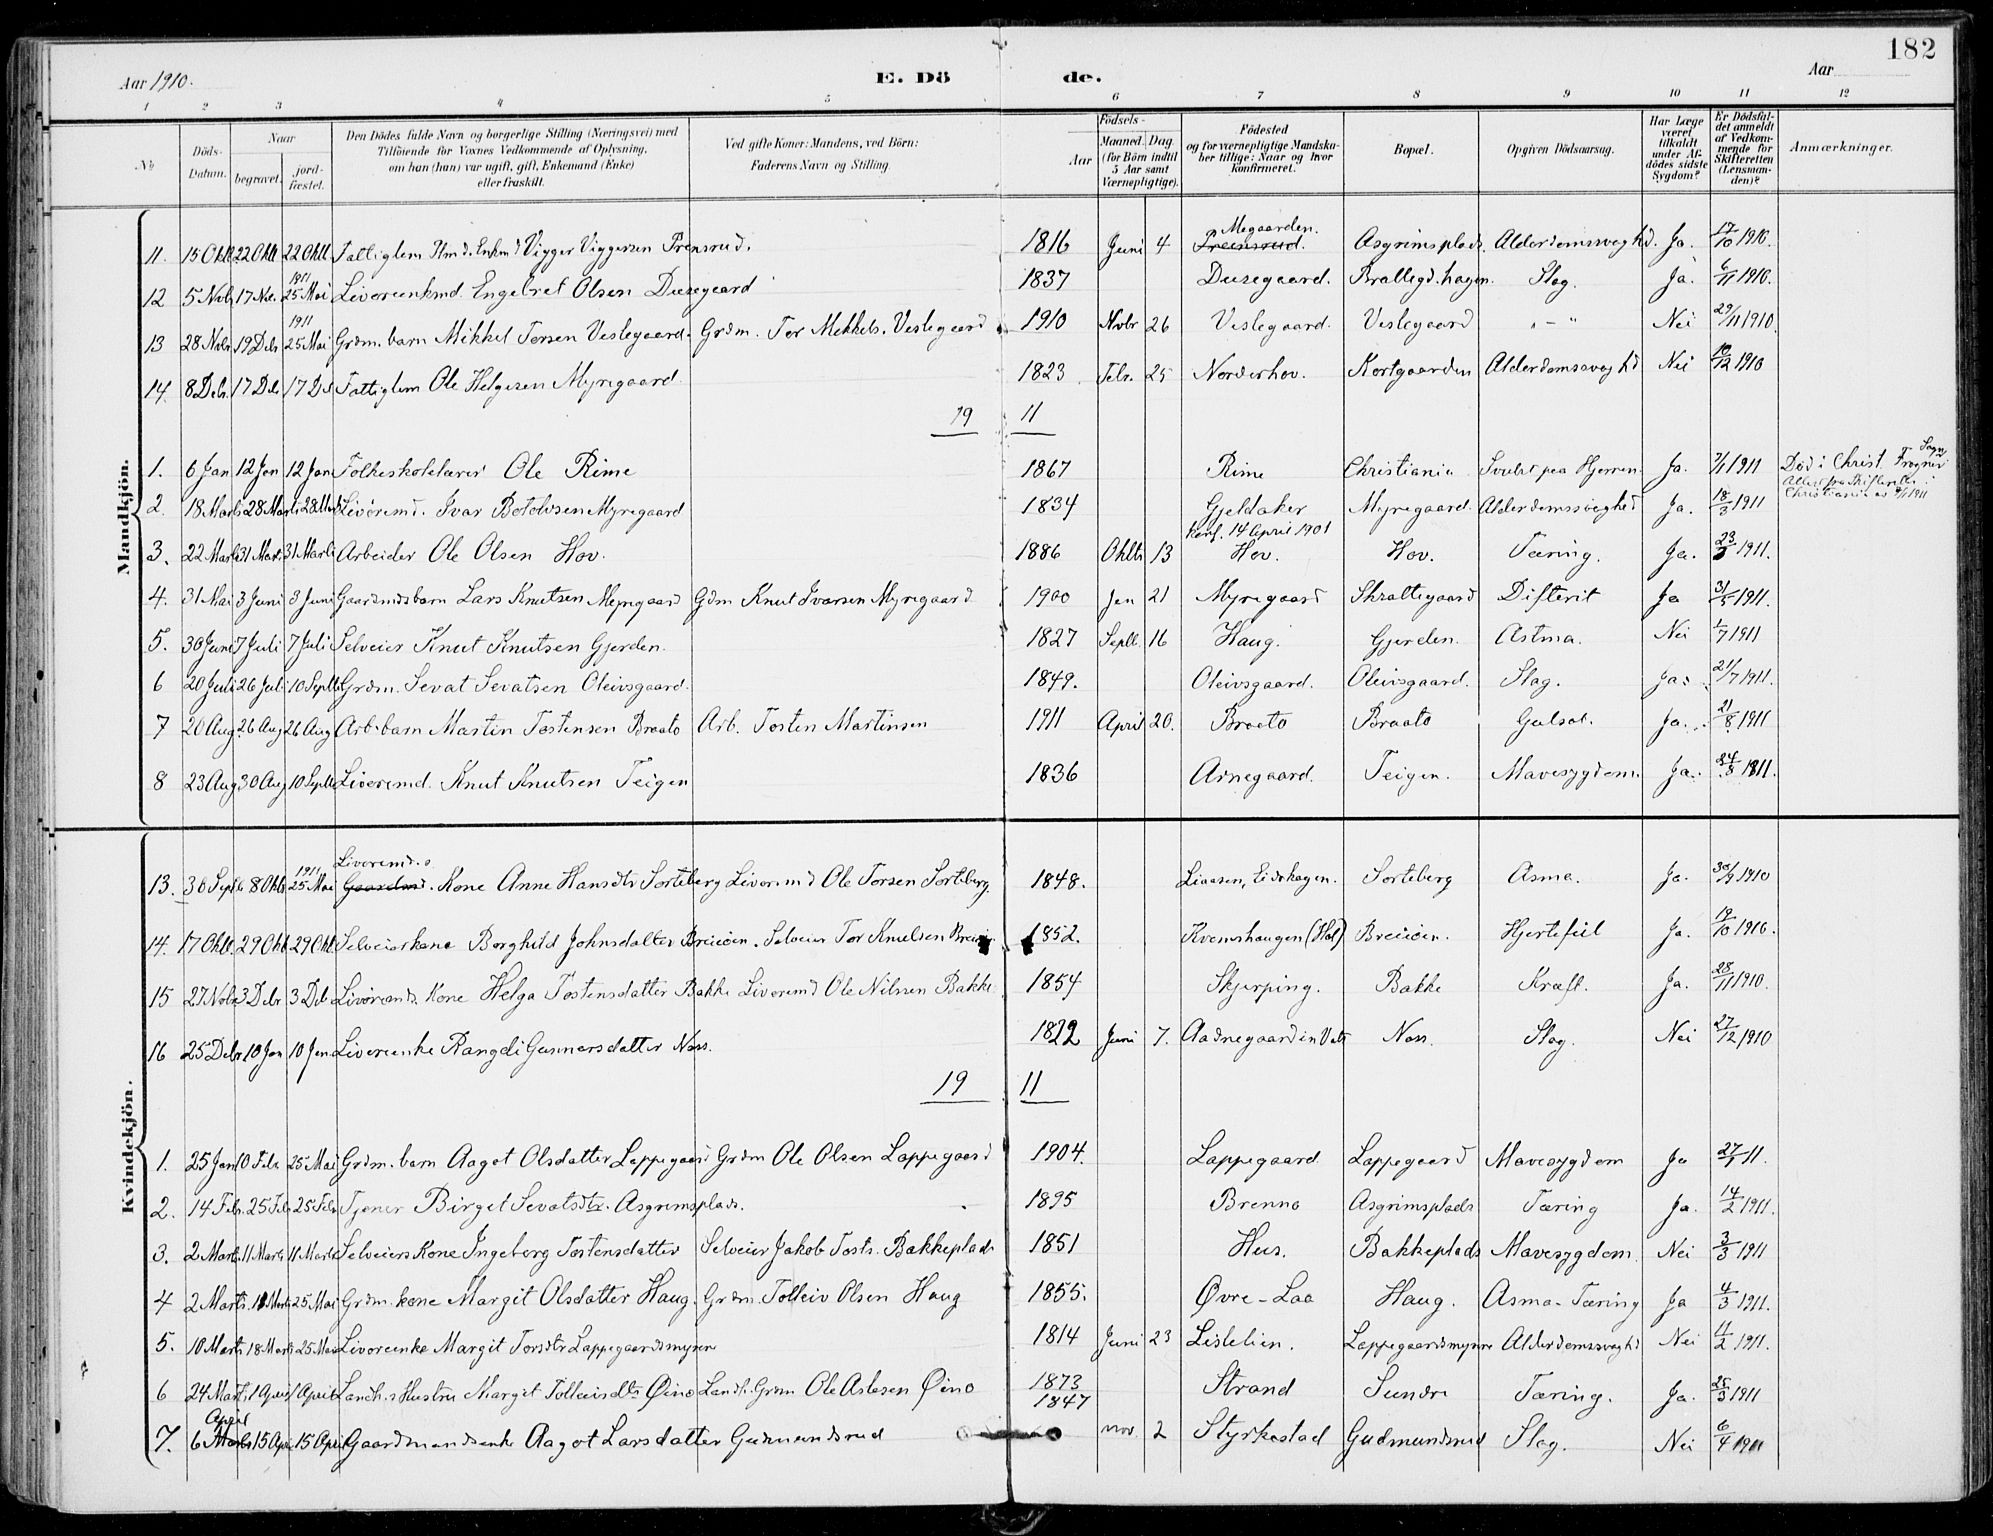 182
Aar 1910. E. Dö de. Aar
1 2 3 4 5 6 7 8 9 10 11 12
№ Döds-Datum. Naar begravet. jord-fæstet. Den Dödes fulde Navn og borgerlige Stilling (Næringsvei) med Tilföiende for Voxnes Vedkommende af Oplysning, om han (hun) var ugift, gift, Enkemand (Enke) eller fraskilt. Ved gifte Koner: Mandens, ved Börn: Faderens Navn og Stilling. Födsels- Aar Maaned. Dag. (for Börn indtil 5 Aar samt Værnepligtige). Födested og for værnepligtige Mandskaber tillige: Naar og hvor konfirmeret. Bopæl. Opgiven Dödsaarsag. Har Læge været tilkaldt under Afdödes sidste Sygdom? Er Dödsfaldet anmeldt af Vedkommende for Skifteretten (Lensmanden)? Anmærkninger.
Mandkjön.
Megaarden.
11. 15 Okt 22 Oktb 22 Oktb Fattiglem Viggo Viggersen Prensrud. 1816 Juni 4 Preensrud. Asgrimsplads. Alderdomssvaghd. Ja. 17/10 1910.
1911
12 5 Nvbr 17 Nov. 25 Mai Livøreenkmd. Engebret Olsen Duzegaard 1837 Duzegaard. Brallegd. hagen. Slag. Ja. 6/11 1910.
1911
13 28 Nvbr 19 Debr 25 Mai Grdm. barn Mikkel Torsen Veslegaard. Grdm. Tor Mekkels. Veslegaard 1910 Nvbr 26 Veslegaard. Veslegaard „ – “ Nei 29/11 1910.
14. 8 Debr. 17 Debr 17 De Fattiglem Ole Helgesen Myregaard. 1823 Febr. 25 Norderhov. Kortgaarden Alderdomssvaghd Nei 10/12 1910
19 11
1. 6 Jan 12 Jan 12 Jan Folkeskolelærer Ole Rime 1867 Rime Christiania Svulst paa Hjernen Ja. 7/1 1911 Död i Christ. Frogner Sogn
Attest fra Skifteretten i
Christiania av 9/1 1911
2. 18 Marts 28 Marts 28 Marts Livøremd. Ivar Botolvsen Myregaard 1834 Gjeldaker Myregaard. Alderdomssvaghed Ja. 18/3 1911
Konf. 14 April 1901
3. 22 Marts 31 Marts 31 Marts Arbeider Ole Olsen Hov. 1886 Oktb 13 Hov. Hov. Tæring. Ja. 23/3 1911.
4. 31 Mai 3 Juni 3 Juni Gaardmdsbarn Lars Knutsen Myregaard Gdm Knut Ivarsen Myregaard. 1900 Jan 21 Myregaard Skrattegaard Difterit Ja 31/5 1911.
5. 30 Juni 7 Juli 7 Juli Selveier Knut Knutsen Gjerden. 1827 Septb. 16 Haug. Gjerden. Astma. Nei 1/7 1911
6 20 Juli 26 Juli 10 Septb Grdm. Sevat Sevatsen Oleivsgaard. 1849. Oleivsgaard. Oleivsgaard. Slag. Ja. 21/7 1911.
7 20 Aug 26 Aug 26 Aug Arb. barn Martin Tostensen Braato Arb. Tosten Martinsen 1911 April 20. Braato Braato Gulsot. Ja. 21/8 1911
8 23 Aug 30 Aug 10 Septb Livøremd. Knut Knutsen Teigen 1836 Arnegaard. Teigen. Mavesygdom. Ja. 24/8 1811.
Kvindekjön.
1911 Livøremd.s
13. 30 Septb 8 Oktb 25 Mai Gaardmd. Kone Anne Hansdtr Sorteberg Livøremd Ole Torsen Sorteberg. 1848. Liaasen, Eidshagen. Sorteberg Asma. Ja. 30/9 1910
14. 17 Oktb. 29 Okt 29 Okt. Selveierkone Borghild Johnsdatter Breiien. Selveier Tor Knutsen 1852. Kvemshaugen (Hol). Breiien. Hjertefeil Ja. 19/10 1910.
15 27 Nvbr 3 Debr 3 Deb Livøremds. Kone Helga Tostensdatter Bakke Livøremd Ole Nilsen Bakke. 1854 Skjerping. Bakke Kræft. Ja. 28/11 1910.
16 25 Debr 10 Jan 10 Jan Livøreenke Rangdi Gunnarsdatter Næss. 1822 Juni 7. Aadnegaard in Vats Næss. Slag. Nei 27/12 1910
19 11
1. 25 Jan 10 Febr 25 Mai Grdm. barn Aagot Olsdatter Lappegaard Grdm Ole Olsen Lappegaard 1904. Lappegaard Lappegaard Mavesygdom Ja 27/1 11.
2. 14 Febr. 25 Febr 25 Febr Tjener Birget Sevatsdtr. Asgrimsplads. 1895 Brenno Asgrimsplads Tæring Ja. 14/2 1911.
3. 2 Marts 11 Marts 11 Marts Selveiers Kone Ingeborg Tostensdatter Selveier Jakob Tosts. Bakkeplads 1851 Hus. Bakkeplads Mavesygdom. Nei 3/3 1911
4 2 Marts. 11 Marts 25 Mai Grdm. kone Margit Olsdatter Haug. Grdm. Tolleiv Olsen Haug 1855. Øvre-Laa Haug. Asma-Tæring Ja 4/3 1911.
5. 10 Marts 18 Marts 25 Mai Livøreenke Margit Torsdtr Lappegaardsmyren 1814 Juni 23 Lislelien. Lappegaardsmyren Alderdomssvaghd Nei 11/2 1911.
6 24 Marts. 1 April 1 April Landh.s Hustru Margit Tolleivsdtr Øino Landh. Grdm Ole Aslesen Øino 1873 Strand Sundre Tæring. Ja. 25/3 1911
April 1847
7. 6 Marts 15 Apr 15 April Gaardmandsenke Aagot Larsdatter Gudmundsrud nov. 2 Styrkestad Gudmundsrud Slag. Nei 6/4 1911